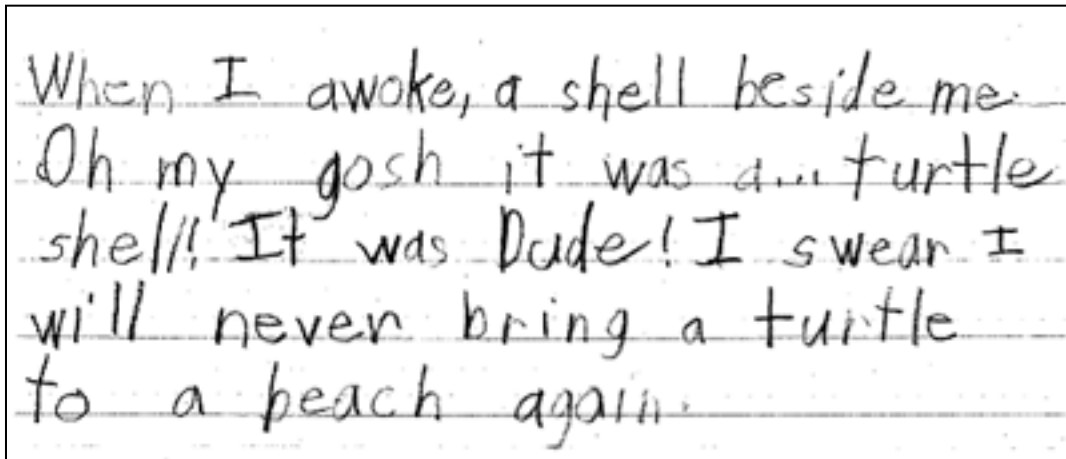 When I awoke, a shell beside me.
Oh my gosh it was a... turtle
shell! It was Dude! I swear I
will never bring a turtle
to a beach again.